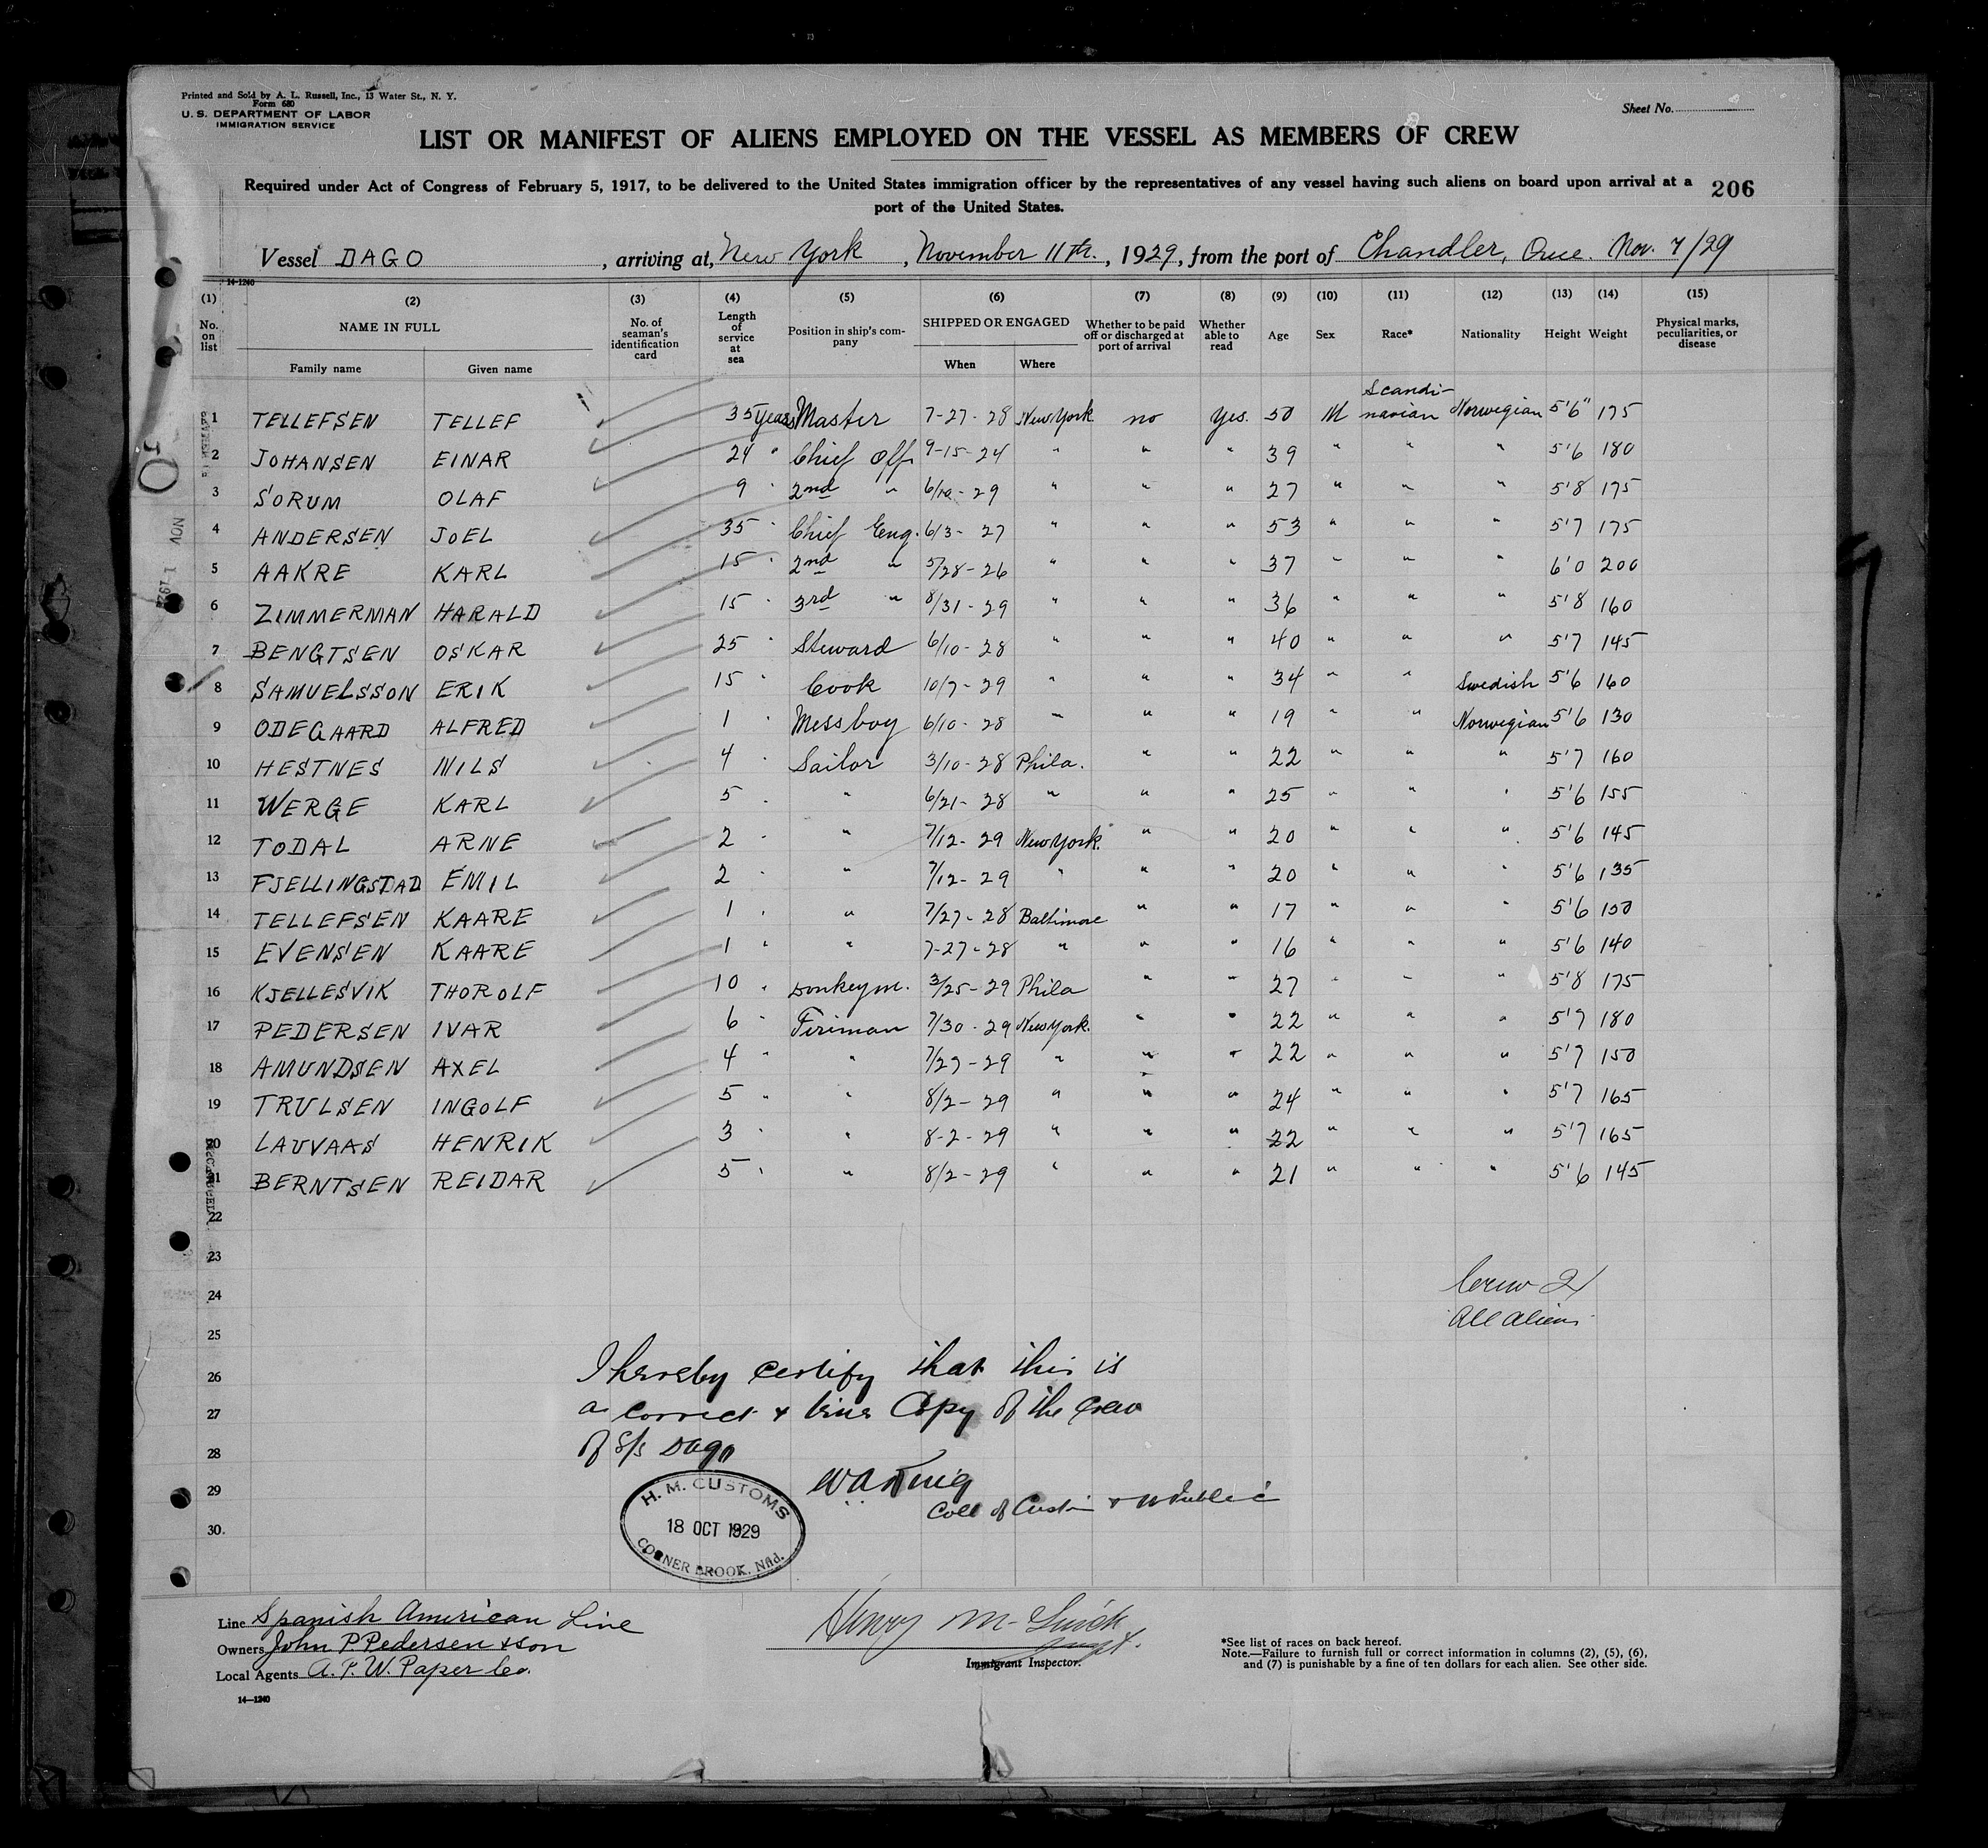 Printed and Sold by A. L. Russell, Inc., 13 Water St., N. Y.
Form 680
U. S. DEPARTMENT OF LABOR
IMMIGRATION SERVICE
Sheet No.
LIST OR MANIFEST OF ALIENS EMPLOYED ON THE VESSEL AS MEMBERS OF CREW
Required under Act of Congress of February 5, 1917, to be delivered to the United States immigration officer by the representatives of any vessel having such aliens on board upon arrival at a
port of the United States.
206
Vessel DAGO, arriving at, New York, November 11th., 1929, from the port of Chandler, Que. Nov. 7/29
14-1240
(1) (2) (3) (4) (5) (6) (7) (8) (9) (10) (11) (12) (13) (14) (15)
No. on list NAME IN FULL Family name Given name No. of seaman's identification card Length of service at sea Position in ship's company SHIPPED OR ENGAGED When Where Whether to be paid off or discharged at port of arrival Whether able to read Age Sex Race* Nationality Height Weight Physical marks, peculiarities, or disease
1 TELLEFSEN TELLEF 35 years Master 7-27-28 New York no yes. 50 M Scandinavian Norwegian 5'6" 175
2 JOHANSEN EINAR 24 " Chief Off. 9-15-24 " " " 39 " " " 5'6 180
3 SORUM OLAF 9 " 2nd " 6/10-29 " " " 27 " " " 5'8 175
4 ANDERSEN JOEL 35 " Chief Eng. 6/3-27 " " " 53 " " " 5'7 175
5 AAKRE KARL 15 " 2nd " 5/28-26 " " " 37 " " " 6'0 200
6 ZIMMERMAN HARALD 15 " 3rd " 8/31-29 " " " 36 " " " 5'8 160
7 BENGTSEN OSKAR 25 " Steward 6/10-28 " " " 40 " " " 5'7 145
8 SAMUELSSON ERIK 15 " Cook 10/7-29 " " " 34 " " Swedish 5'6 160
9 ODEGAARD ALFRED 1 " Messboy 6/10-28 " " " 19 " " Norwegian 5'6 130
10 HESTNES NILS 4 " Sailor 3/10-28 Phila. " " 22 " " " 5'7 160
11 WERGE KARL 5 " " 6/21-28 " " " 25 " " " 5'6 155
12 TODAL ARNE 2 " " 7/12-29 New York. " " 20 " " " 5'6 145
13 FJELLINGSTAD EMIL 2 " " 7/12-29 " " " 20 " " " 5'6 135
14 TELLEFSEN KAARE 1 " " 7/27-28 Baltimore " " 17 " " " 5'6 150
15 EVENSEN KAARE 1 " " 7-27-28 " " " 16 " " " 5'6 140
16 KJELLESVIK THOROLF 10 " Donkeym. 3/25-29 Phila " " 27 " " " 5'8 175
17 PEDERSEN IVAR 6 " Firiman 7/30-29 New York. " " 22 " " " 5'7 180
18 AMUNDSEN AXEL 4 " " 7/27-29 " " " 22 " " " 5'7 150
19 TRULSEN INGOLF 5 " " 8/2-29 " " " 24 " " " 5'7 165
20 LAUVAAS HENRIK 3 " " 8-2-29 " " " 22 " " " 5'7 165
21 BERNTSEN REIDAR 5 " " 8/2-29 " " " 21 " " " 5'6 145
22
23
24 Crew 21
All aliens
25
26 I hereby certify that this is
27 a correct & true Copy of the crew
28 of S/s Dago
29
Coll of Customs
30.
H. M. CUSTOMS
18 OCT 1929
CORNER BROOK, Nfld.
Line Spanish American Line
Owners John P Pedersen & son
Local Agents A. P. W. Paper Co.
14—1240
Immigrant Inspector.
*See list of races on back hereof.
Note.—Failure to furnish full or correct information in columns (2), (5), (6),
and (7) is punishable by a fine of ten dollars for each alien. See other side.